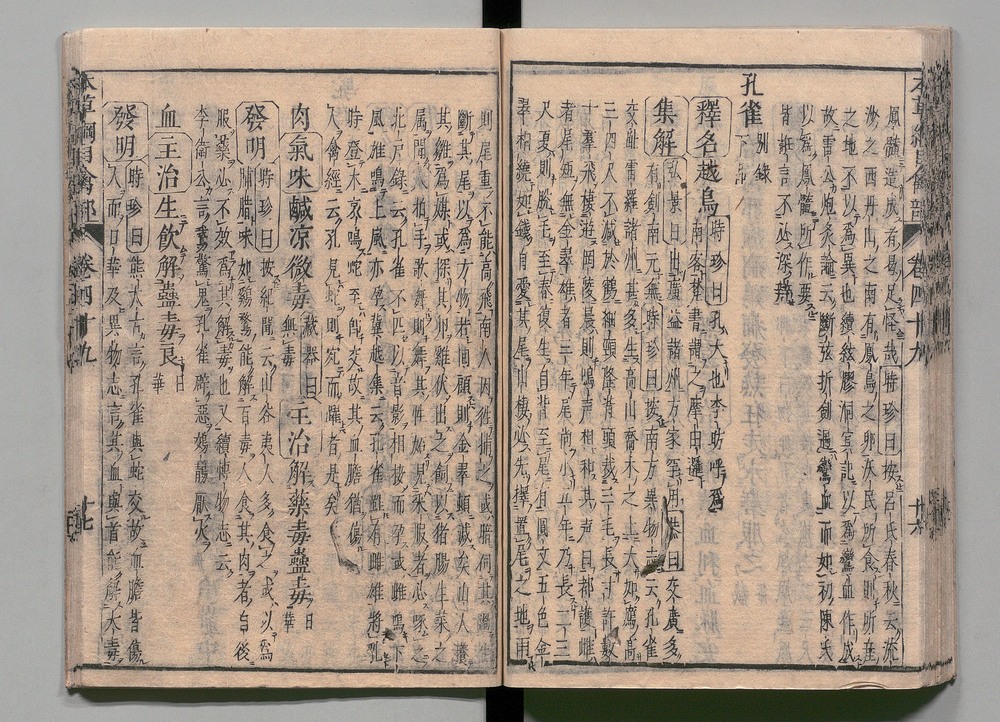 本草綱目禽部 卷四十九 廿六
鳳髓造成者曷足怪哉時珍曰按呂氏春秋云流
沙之西丹山之南有鳳鳥之卵沃民所食則所產
之地不以爲異也續絃膠洞冥記以爲鸞血作成
故雷公炮炙論云斷弦折劍遇鸞血而如初陳氏
以爲鳳髓所作要
皆誑言不必深辨
孔雀別錄下品
釋名越鳥時珍曰孔大也李昉呼爲
南客梵書謂之摩由邏
集解弘景曰出廣益諸州方家罕用恭曰交廣多
有劍南元無時珍曰按南方異物志云孔雀
交趾雷羅諸州甚多生高山喬木之上大如鴈高
三四尺不減於鶴細頸隆背頭戴三毛長寸許數
十羣飛棲遊岡陵晨則鳴聲相和其聲曰都護雌
者尾短無金翠雄者三年尾尚小五年乃長二三
尺夏則脫毛至春復生自背至尾有圓文五色金
翠相繞如錢自愛其尾山棲必先擇置尾之地雨
則尾重不能高飛南人因往捕之或暗伺其過生
斷其尾以爲方物若回顧則金翠頓減矣山人養
其雛爲媒或探其卵雞伏出之飼以猪腸生菜之
屬聞人拍手歌舞則舞其性妬見采服者必啄之
北戶錄云孔雀不匹以音影相接而孕或雌鳴下
風雄鳴上風亦孕冀越集云孔雀雖有雌雄將乳
時登木哀鳴蛇至即交故其血膽猶傷
人禽經云孔見蛇則宛而躍者是矣
肉氣味鹹凉微毒藏器曰無毒主治解藥毒蠱毒日華
發明時珍曰按紀聞云山谷夷人多食之或以爲
脯腊味如雞鶩能解百毒人食其肉者自後
服藥必不效爲其解毒也又續博物志云
李衛公言鵞驚鬼孔雀辟惡鵁鶄厭火
血主治生飲解蠱毒良日華
發明時珍曰熊太古言孔雀與蛇交故血膽皆傷
人而日華及異物志言其血與首能解大毒
本草綱目禽部 卷四十九 廿七